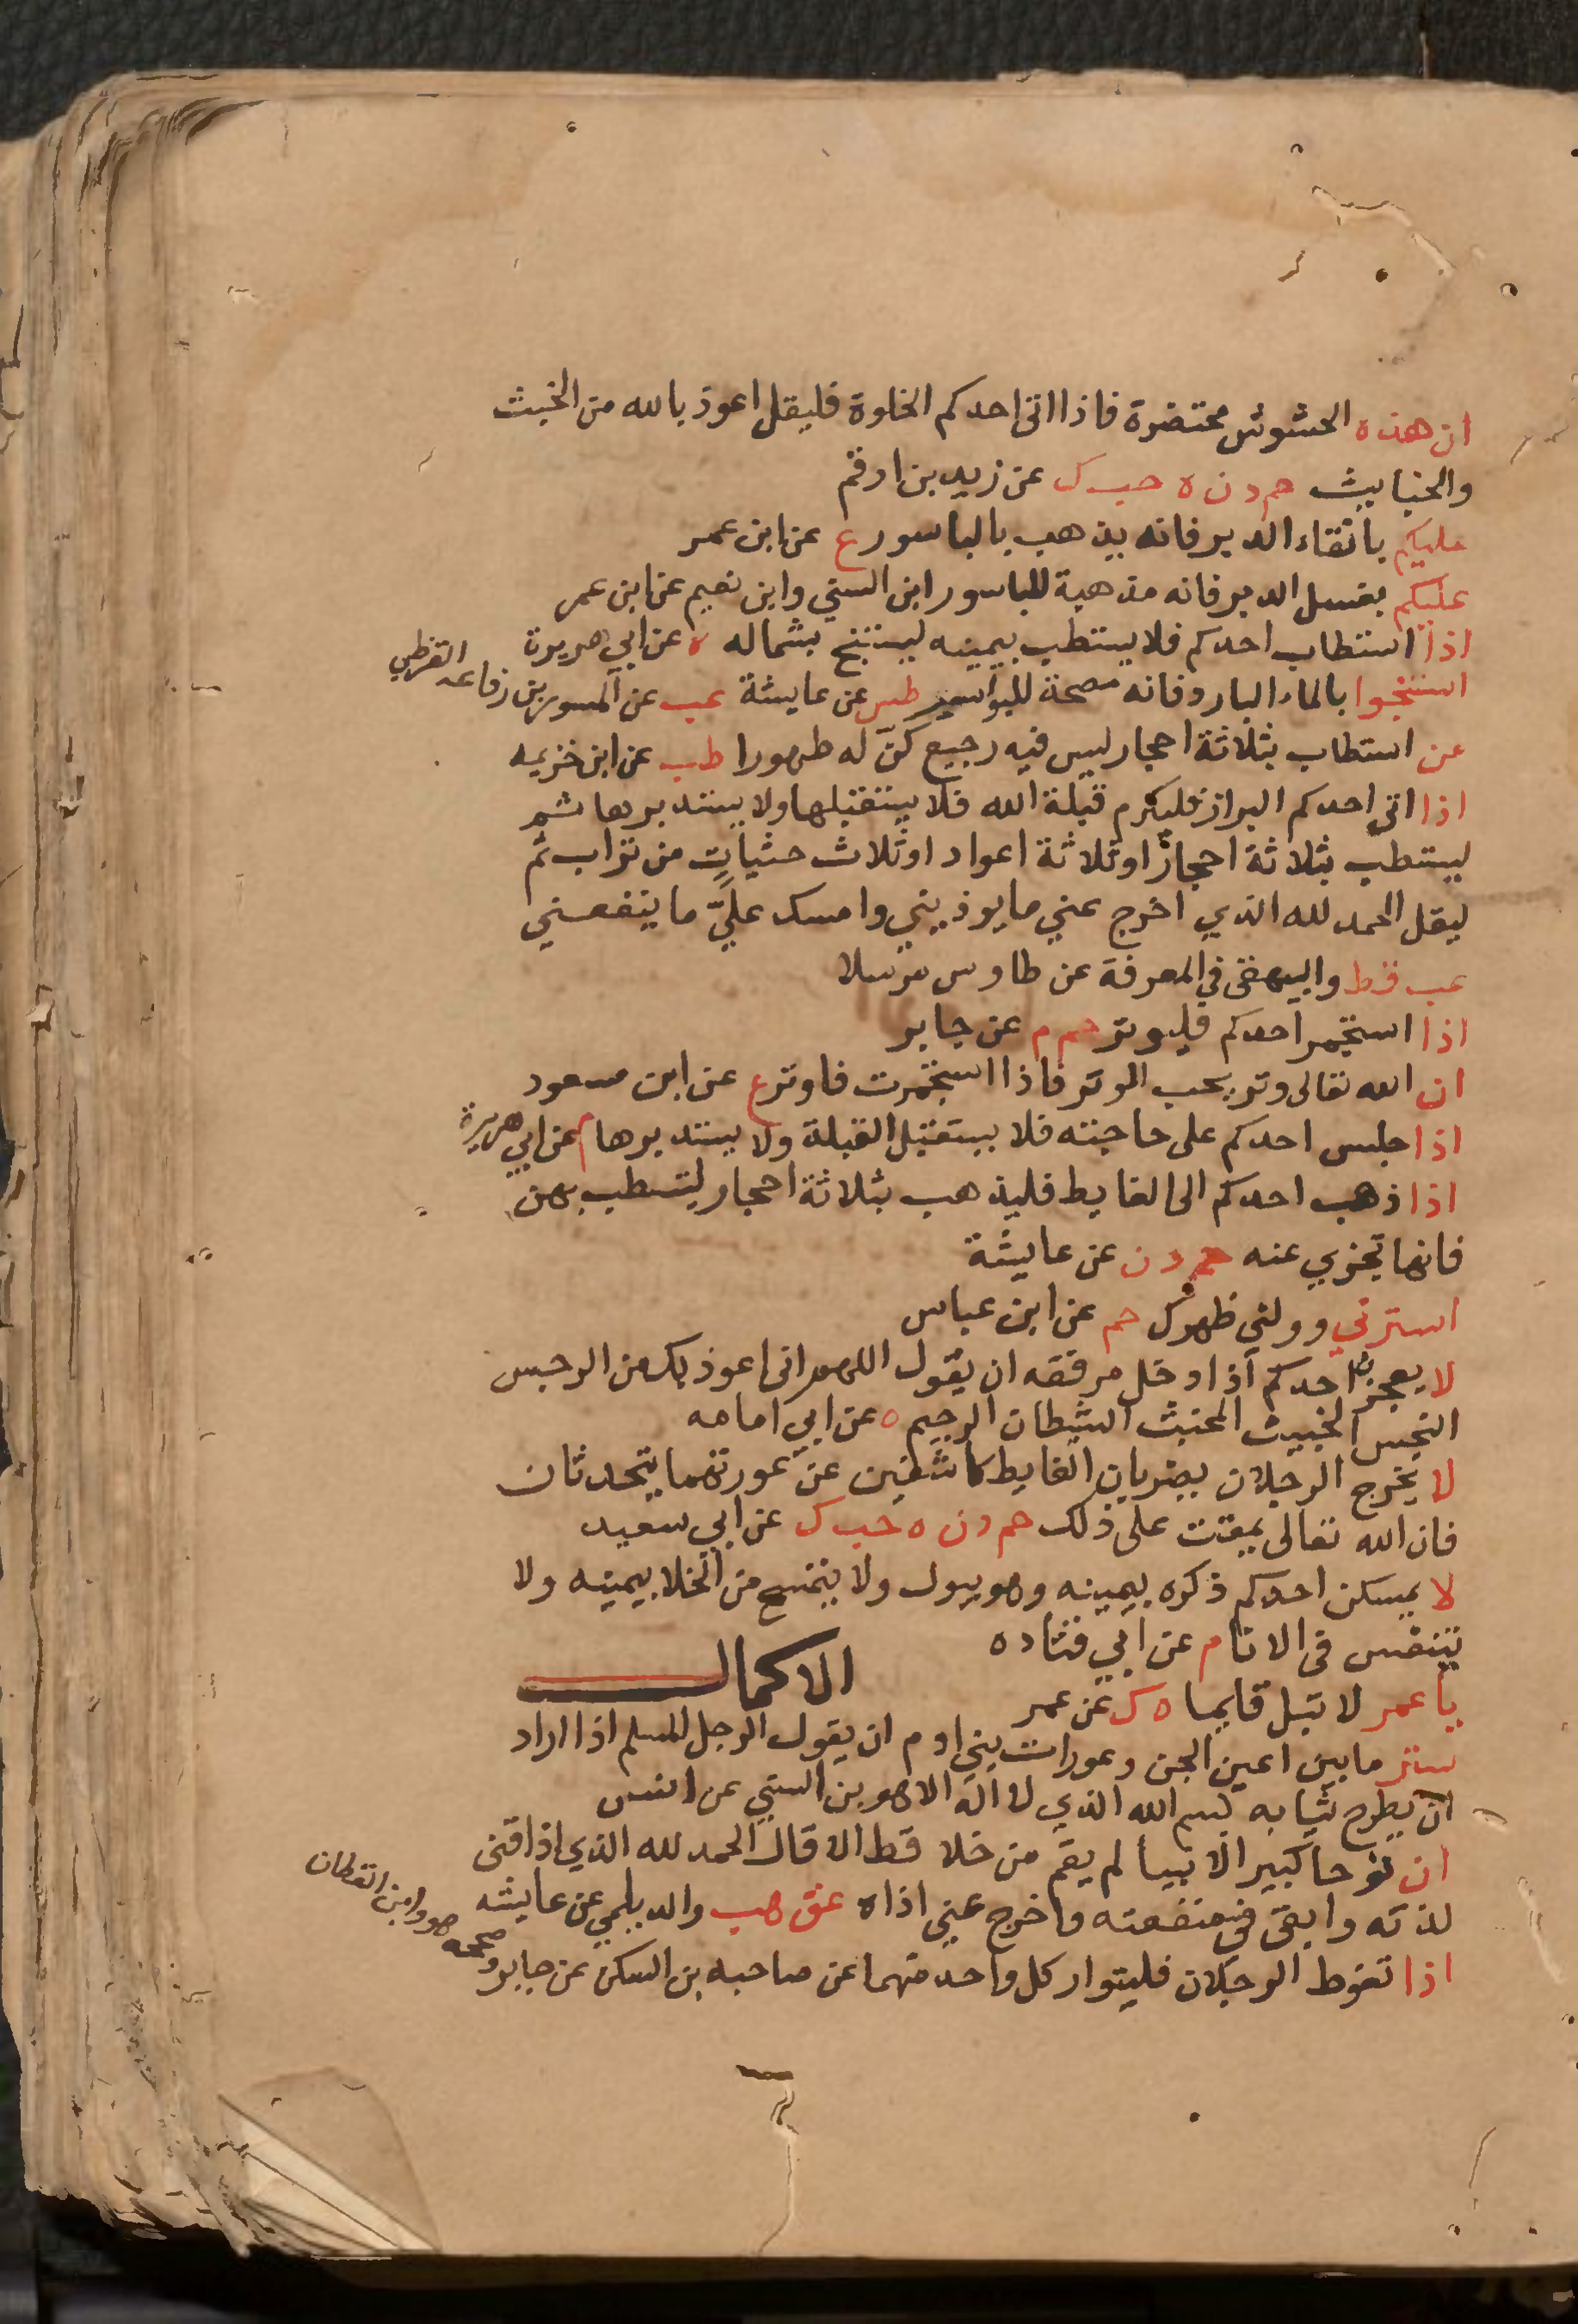 ان هذه الحشوش محتضرة فاذا اتى احدكم الخلوة فليقل اعوذ بالله من الخبث
والخبايث حم د ن ه حب ك عن زيد بن ارقم
عليكم بانقاء الدبر فانه يذهب بالباسور ع عن ابن عمر
عليكم بغسل الدبر فانه مذهبة للباسور ابن السني وابن نعيم عن ابن عمر
اذا استطاب احدكم فلا يستطب بيمينه ليستنج بشماله ه عن ابي هريرة
استنجوا بالماء البارد فانه مصحة للبواسير طس عن عايشة عب عن المسور بن رفاعه القرظي
من استطاب بثلاثة احجار ليس فيه رجيع كنّ له طهورا طب عن ابن خزيمه
اذا اتى احدكم البراز فليكرم قبلة الله فلا يستقبلها ولا يستدبرها ثم
ليستطب بثلاثة احجار او ثلاثة اعواد او ثلاث حثيات من تراب ثم
ليقل الحمد لله الذي اخرج عني ما يوذيني وامسك عليّ ما ينفعني
عب قط والبيهقي في المعرفة عن طاوس مرسلا
اذا استجمر احدكم فليوتر حم م عن جابر
ان الله تعالى وتر يحب الوتر فاذا استجمرت فاوتر ع عن ابن مسعود
اذا جلس احدكم على حاجته فلا يستقبل القبلة ولا يستدبرها م عن ابي هريرة
اذا ذهب احدكم الى الغايط فليذهب بثلاثة احجار ليستطب بهن
فانها تجزي عنه حم د ن عن عايشة
استرني وولني ظهرك حم عن ابن عباس
لا يعجز احدكم اذا دخل مرفقه ان يقول اللهم انى اعوذ بك من الرجس
النجس الخبيث المخبث الشيطان الرجيم ه عن ابي امامه
لا يخرج الرجلان يضربان الغايط كاشفين عن عورتهما يتحدثان
فان الله تعالى يمقت على ذلك حم د ن ه حب ك عن ابي سعيد
لا يمسكن احدكم ذكره بيمينه وهو يبول ولا يتمسح من الخلا بيمينه ولا
يتنفس فى الانا م عن ابي قتاده
الاكمال
يا عمر لا تبل قايما ه ك عن عمر
ستر ما بين اعين الجن وعورات بني ادم ان يقول الرجل المسلم اذا اراد
ان يطرح ثيابه بسم الله الذي لا اله الا هو بن السني عن انس
ان نوحا كبير الانبيا لم يقم من خلا قط الا قال الحمد لله الذي اذاقنى
لذته وابقى في منفعته واخرج عني اذاه عق هب والديلمي عن عايشه
اذا تغوط الرجلان فليتوار كل واحد منهما عن صاحبه بن السكن عن جابر وصححه هو وابن القطان